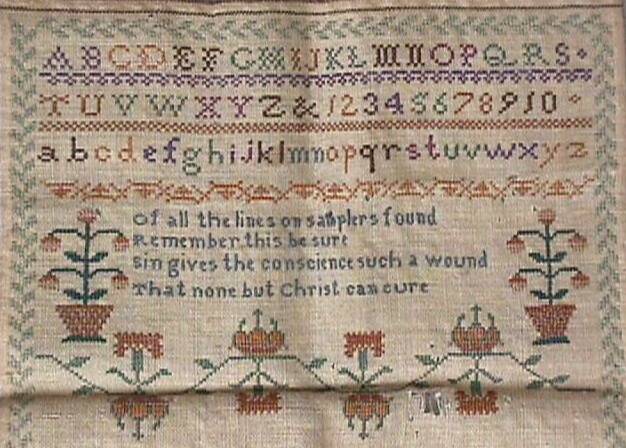 ABCDEFGHIJKLMNOPQRS
TUVWXYZ&12345678910
abcdefghijklmnopqrstuvwxyz
Of all the lines on samplers found
Remember this be sure
Sin gives the conscience such a wound
That none but Christ can cure